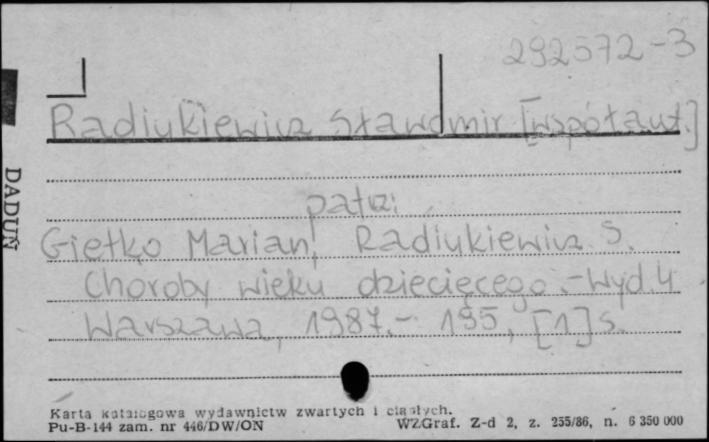 292572-3
Radiukiewicz Sławomir [współaut.]
patrz:
Giełko Marian, Radiukiewicz S.
Choroby wieku dziecięcego.- Wyd. 4
Warszawa, 1987.- 195, [1] s.
DADUŃ
Karta katalogowa wydawnictw zwartych i ciągłych.
Pu-B-144 zam. nr 446/DW/ON WZGraf. Z-d 2, z. 255/86, n. 6 350 000